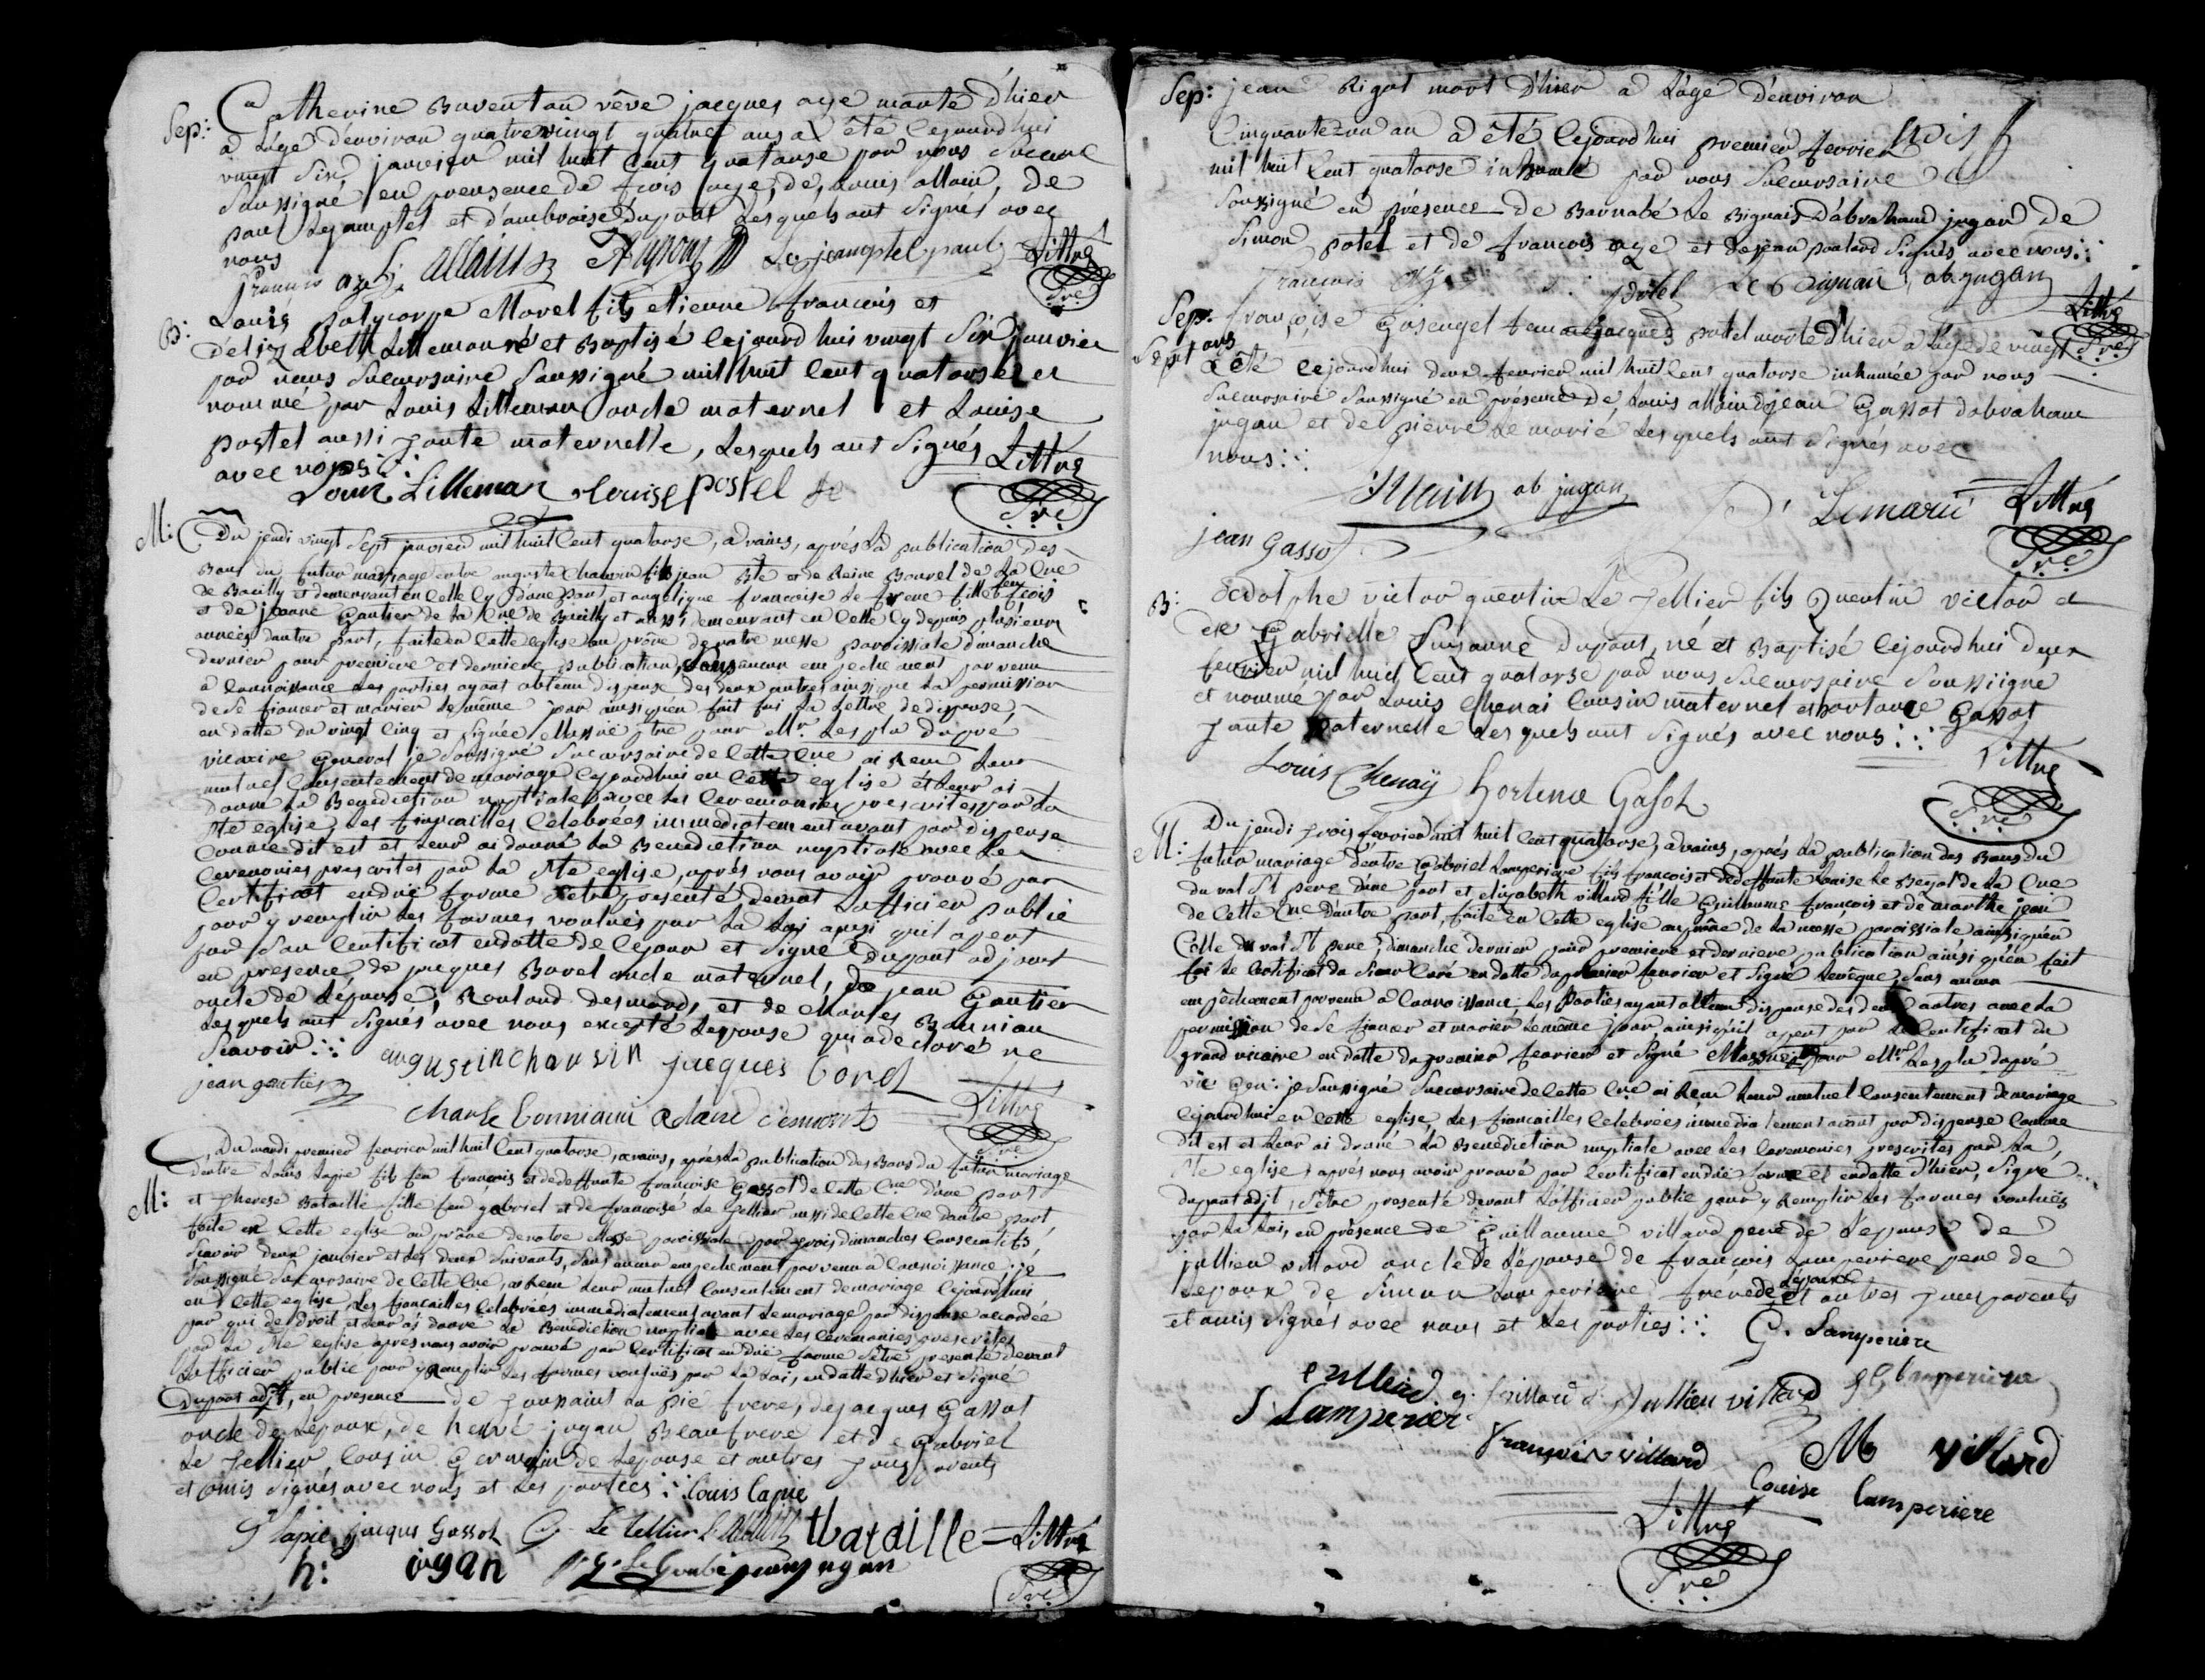 Sep: Catherine Baventau vêve jacques aze morte d'hier
à l'âge d'environ quatrevingt quatre ans a été cejourd'hui
vingt six janvier mil huit cent quatorse par nous Succurs
Soussigné en preusence de frois aze, de Louis allain, de
paul Lejamptel et d'ambroise dupont Lesquels ont Signés avec
nous
françois aze L allain Lejeamptel paul Littré Sre
B: Louis polycarpe Morel fils etienne françois et
d'elizabeth Lilleman né et Baptisé cejourd hui vingt Six janvier
par nous Succursaire Soussigné mil huit cent quatorse et
nommé par Louis Lilleman oncle maternel et Louise
postel aussi tante maternelle, Lesquels ont Signés
avec nous
Louis Lilleman Louise postel Littré Sre
M: Du jeudi vingt Sept janvier mil huit Cent quatorse, a vains, aprés La publication des
Bans du futur mariage entre auguste Chauvin fils jean Bte et de Reine Bourel de La Cne
de Bacilly et demeurant en Celle Cy d'une part, et angelique francoise Le frere fille feu fcois
et de jeanne Gautier de La Cne de Bacilly et aussi demeurant en Celle Cy depuis plusieurs
années dautre part, faite en Cette eglise au prône de notre messe paroissiale dimanche
dernier pour premiere et derniere publication, Sans aucun empechement parvenu
à Connoissance Les parties ayant obtenu dispense des deux autres ainsi que La permission
de Se fiancer et marier Le même jour ainsi qu'en fait foi La Lettre de dispense
en datte du vingt Cinq et Signée Massuë ptre pour Mr. Lesplu dupré
vicaire General je Soussigné Succursaire de Cette Cne ai Reçu Leur
mutuel Consentement de mariage Cejourdhui en Cette eglise et Leur ai
donné La Benediction nuptiale avec Les Ceremonies prescrites par La
Ste eglise, Les fiançailles Celebrées immediatement avant par dispense
Comme dit est et Leur ai donné La Benediction nuptiale avec Les
Ceremonies prescrites par La Ste eglise, aprés nous avoir prouvé par
Certificat endue forme Setre presenté devant Lofficier public
pour y remplir Les formes voulues par La Loi ainsi quil apert
par Son Certificat endatte de Cejour et Signé Dupont adjoint
en presence de jacques Borel oncle maternel, de jean Gautier
oncle de L'épouse, Rouland desmonds, et de Charles Bonniau
Lesquels ont Signés avec nous excepté Lepouse qui a declaré ne
Scavoir
augustin chauvin jacques borel
jean gautier Littré Sre
charle bonniaui
M: Du mardi premier fevrier mil huit Cent quatorse, a vains, aprés La publication des Bans du futur mariage
dentre Louis Lapie fils feu françois et de deffunte françoise Gassot de Cette Cne d'une part
et therese Bataille fille feu gabriel et de françoise Le tellier aussi de Cette Cne dautre part
faite en Cette eglise au prône de notre Messe paroissiale par trois dimanches Consecutifs,
Scavoir deux janvier et Les deux Suivants, Sans aucun empechement parvenu à Connoissance je
Soussigné Succursaire de Cette Cne, ai Reçu Leur mutuel Consentement de mariage Cejourdhui
en Cette eglise Les fiançailles Celebrées immediatement avant Le mariage par dispense accordée
par qui de droit et Leur ai donné La Benediction nuptiale avec Les Ceremonies prescrites
par La Ste eglise aprés nous avoir prouvé par Certificat endue forme S'être presenté devant
Lofficier public pour y Remplir Les formes voulues par La Loi, endatte d'hier et Signé
Dupont adjt, en presence de toussaint La pie frere, de jacques Gassot
oncle de Lepoux, de hervé jugan Beaufrere et de gabriel
Le tellier, Cousin Germain de Lepouse et autres tous parents
et amis Signés avec nous et Les parties: Louis Lapie
t lapie jacques Gassot G. Le tellier L allain tbataille Littré
h: jugan Sre
Sep: jean Rigot mort d'hier à L'âge d'environ
Cinquante un an a été Cejourd hui premier fevrier
mil huit Cent quatorse inhumé par nous Succursaire
Soussigné en présence de Barnabé Le Bignais d'abraham jugan de
Simon potel et de françois aze et de jean poulard Signés avec nous
françois aze potel Le Bignais ab jugan Littré Sre
Sep: françoise Gosengel femme jacques potel morte d'hier à L'age de vingt
Sept ans a été Cejourdhui deux fevrier mil huit Cent quatorse inhumée par nous
Succursaire Soussigné en présence de Louis allain de jean Gassot d'abraham
jugan et de pierre Le marié Lesquels ont Signés avec
nous
L allain ab jugan P Lemarié Littré
jean Gassot Sre
B: adolphe victor quentin Le tellier fils Quentin victor et
de Gabrielle Suzanne Dupont, né et Baptisé Cejourd hui deux
fevrier mil huit Cent quatorse par nous Succursaire Soussigné
et nommé par Louis Chenai Cousin maternel et hortance Gassot
tante paternelle Lesquels ont Signés avec nous
Louis Chenaÿ hortence Gassot Littré Sre
M: Du jeudi trois fevrier mil huit Cent quatorse, a vains, aprés La publication des Bans du
futur mariage D'entre Gabriel Lamperiere fils françois et de deffunte Louise Le Bezot de La Cne
du val St pere d'une part et elizabeth villard fille Guillaume françois et de marthe jean
de Cette Cne d'autre part, faite en Cette eglise au prône de La messe paroissiale ainsi qu'en
Celle du val St pere, dimanche dernier pour premiere et derniere publication ainsi qu'en fait
foi Le Certificat du Sieur Curé endatte du premier fevrier et Signé Levêque, Sans aucun
empêchement parvenu à Connoissance, Les Parties ayant obtenu dispense des deux autres avec La
permission de Se fiancer et marier Le même jour ainsi qu'il apert par Le Certificat du
grand vicaire endatte du premier fevrier et Signé Massuë pour Mr. Lesplu dupré
vic Gen: je Soussigné Succursaire de Cette Cne ai Reçu Leur mutuel Consentement de mariage
Cejourdhui en Cette eglise, Les fiançailles Celebrées immediatement avant par dispense Comme
dit est et Leur ai donné La Benediction nuptiale avec Les Ceremonies prescrites par La
Ste eglise, aprés nous avoir prouvé par Certificat endue forme et endatte d'hier, Signé
dupont adjt, s'être presenté devant L'officier public pour y Remplir Les formes voulues
par La Loi, en présence de Guillaume villard pere de L'epouse de
jullien villard oncle de L'épouse de françois Lamperiere pere de
Lepoux de Simon Lamperiere frere de Lepoux et autres tous parents
et amis Signés avec nous et Les parties: G. Lamperiere
e villard g. villard Jullien villard
S Lamperier
françois villard M villard
Louise lamperiere
Littré
Sre